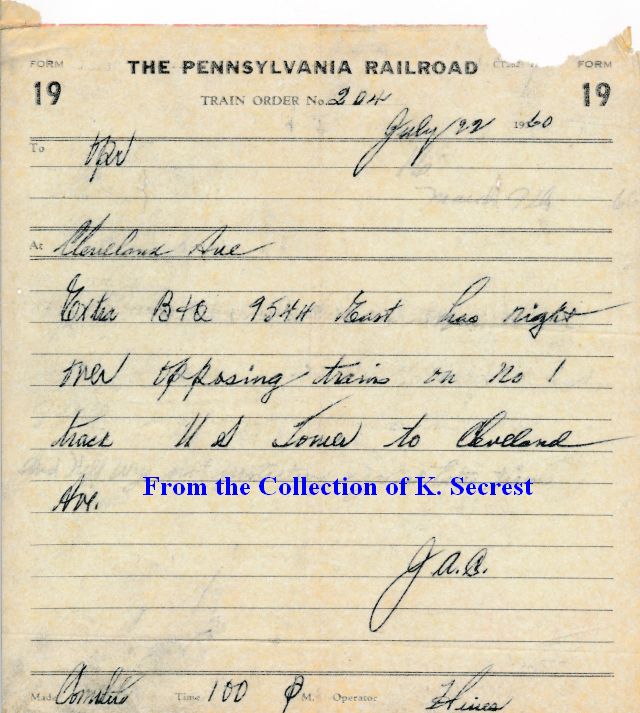 FORM THE PENNSYLVANIA RAILROAD FORM
19 TRAIN ORDER No. 204 19
July 22 1960
To Opr
At Cleveland Ave
Extra B&O 9544 East has right
over opposing trains on No 1
track U S Tower to Cleveland
Ave.
From the Collection of K. Secrest
J.A.B.
Made Complete Time 100 P M. Operator Hines